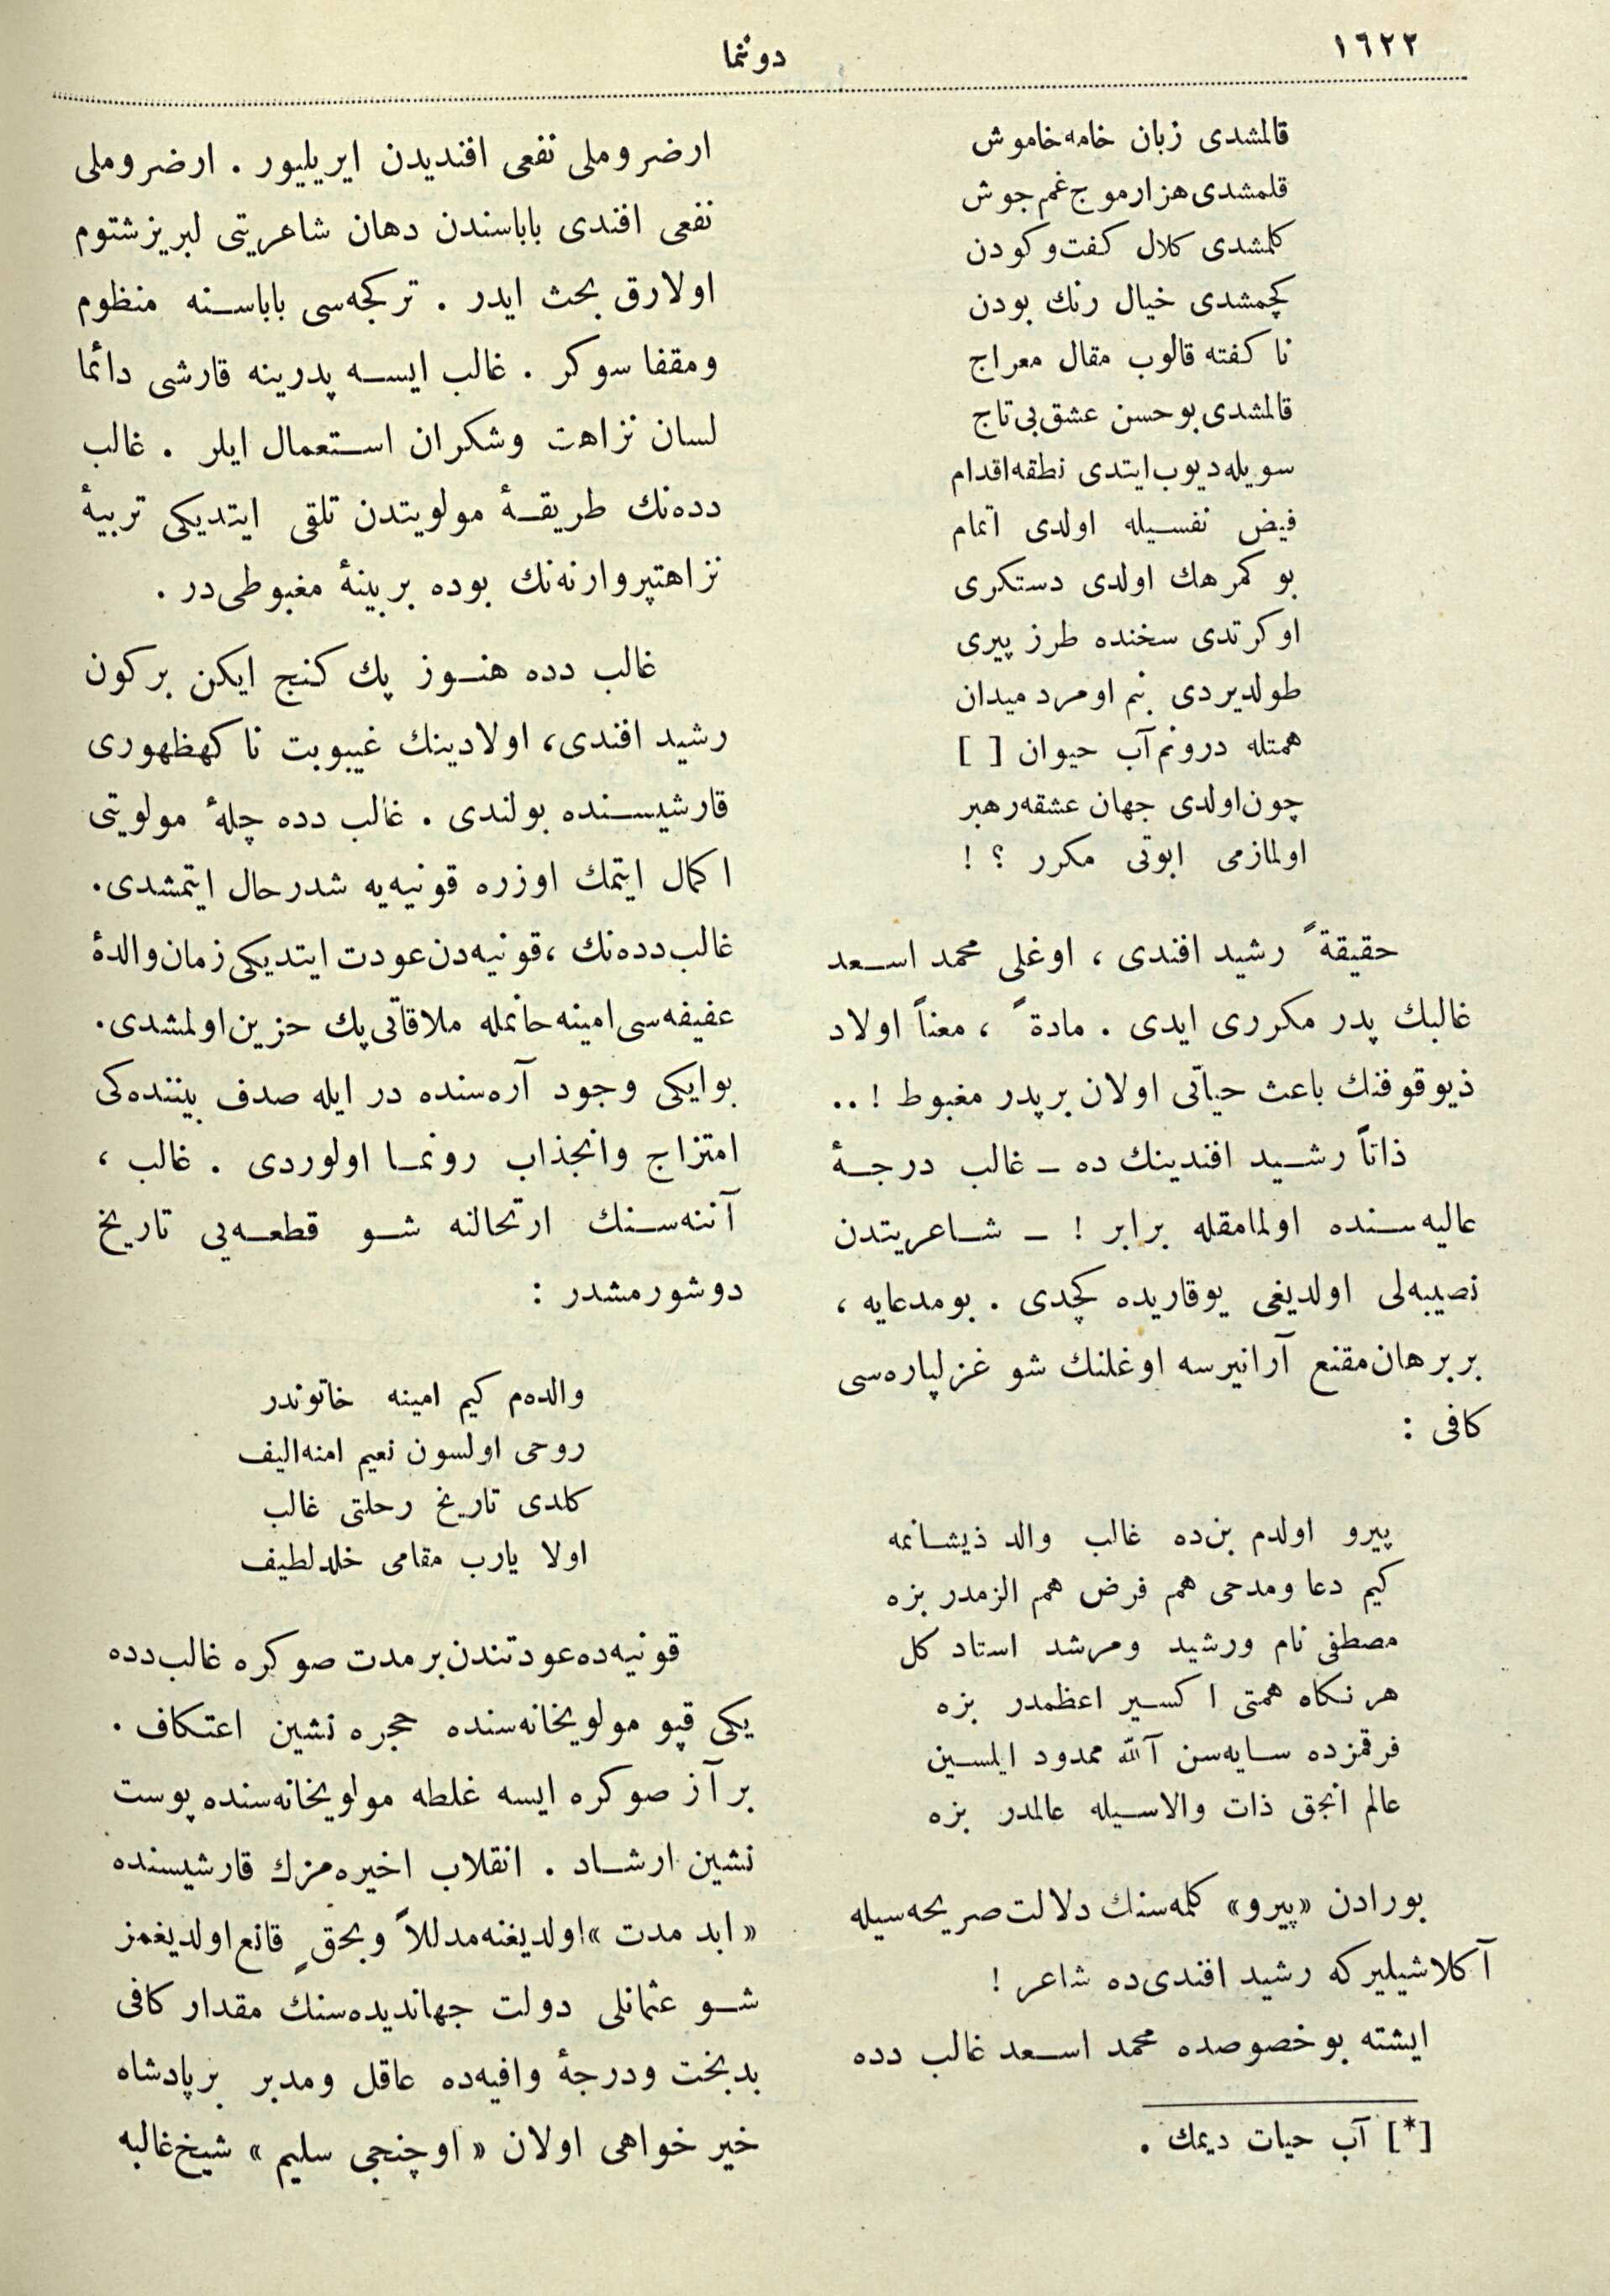 ١٦٢٢
دوننما
قالمشدی زبان خامه خاموش
قلمشدی هزار موج غم جوش
كلمشدی كلال كفت وكودن
كچمشدی خيال رنك بودن
نا كفته قالوب مقال معراج
قالمشدی بو حسن عشق بی تاج
سويله ديوب ايتدی نطقه اقدام
فيض نفسيله اولدی اتمام
بو كمرهك اولدی دستكری
اوكرتدی سخنده طرز پيری
طولديردی بنم او مرد ميدان
همتله درونم آب حيوان [ ]
چون اولدی جهان عشقه رهبر
اولمازمی ابوتی مكرر ؟ !
حقيقةً رشيد افندی ، اوغلی محمد اسعد
غالبك پدر مكرری ايدی . مادةً ، معناً اولاد
ذيوقوفنك باعث حياتی اولان بر پدر مغبوط ! ..
ذاتاً رشيد افندينك ده ـ غالب درجۀ
عاليه سنده اولمامقله برابر ! ـ شاعريتدن
نصيبه لی اولديغی يوقاريده كچدی . بو مدعايه ،
بر برهان مقنع آرانيرسه اوغلنك شو غزلپاره سی
كافی :
پيرو اولدم بن ده غالب والد ذيشانمه
كيم دعا ومدحی هم فرض هم الزمدر بزه
مصطفی نام ورشيد ومرشد استاد كل
هر نكاه همتی اكسير اعظمدر بزه
فرقمزده سايه سن آلله ممدود ايلسين
عالم انجق ذات والاسيله عالمدر بزه
بورادن «پيرو» كلمه سنك دلالت صريحه سيله
آكلاشيليركه رشيد افندی ده شاعر !
ايشته بو خصوصده محمد اسعد غالب دده
[*] آب حيات ديمك .
ارضروملی نفعی افنديدن ايريليور . ارضروملی
نفعی افندی باباسندن دهان شاعريتی لبريز شتوم
اولارق بحث ايدر . تركجه سی باباسنه منظوم
ومقفا سوكر . غالب ايسه پدرينه قارشی دائما
لسان نزاهت وشكران استعمال ايلر . غالب
دده نك طريقۀ مولويتدن تلقی ايتديكی تربيۀ
نزاهتپروارنه نك بوده بر بينۀ مغبوطی در .
غالب دده هنوز پك كنج ايكن بر كون
رشيد افندی، اولادينك غيبوبت ناكهظهوری
قارشيسنده بولندی . غالب دده چلۀ مولويتی
اكمال ايتمك اوزره قونيه يه شدرحال ايتمشدی.
غالب دده نك ، قونيه دن عودت ايتديكی زمان والدۀ
عفيفه سی امينه خانمله ملاقاتی پك حزين اولمشدی.
بو ايكی وجود آره سنده در ايله صدف بيننده كی
امتزاج وانجذاب رونما اولوردی . غالب ،
آننه سنك ارتحالنه شو قطعه يی تاريخ
دوشورمشدر :
والده م كيم امينه خاتوندر
روحی اولسون نعيم امنه اليف
كلدی تاريخ رحلتی غالب
اولا يارب مقامی خلد لطيف
قونيه ده عودتندن بر مدت صوكره غالب دده
يكی قپو مولويخانه سنده حجره نشين اعتكاف .
بر آز صوكره ايسه غلطه مولويخانه سنده پوست
نشين ارشاد . انقلاب اخيره مزك قارشيسنده
« ابد مدت » اولديغنه مدللاً وبحقٍ قانع اولديغمز
شو عثمانلی دولت جهانديده سنك مقدار كافی
بدبخت ودرجۀ وافيه ده عاقل ومدبر بر پادشاه
خير خواهی اولان « اوچنجی سليم » شيخ غالبه